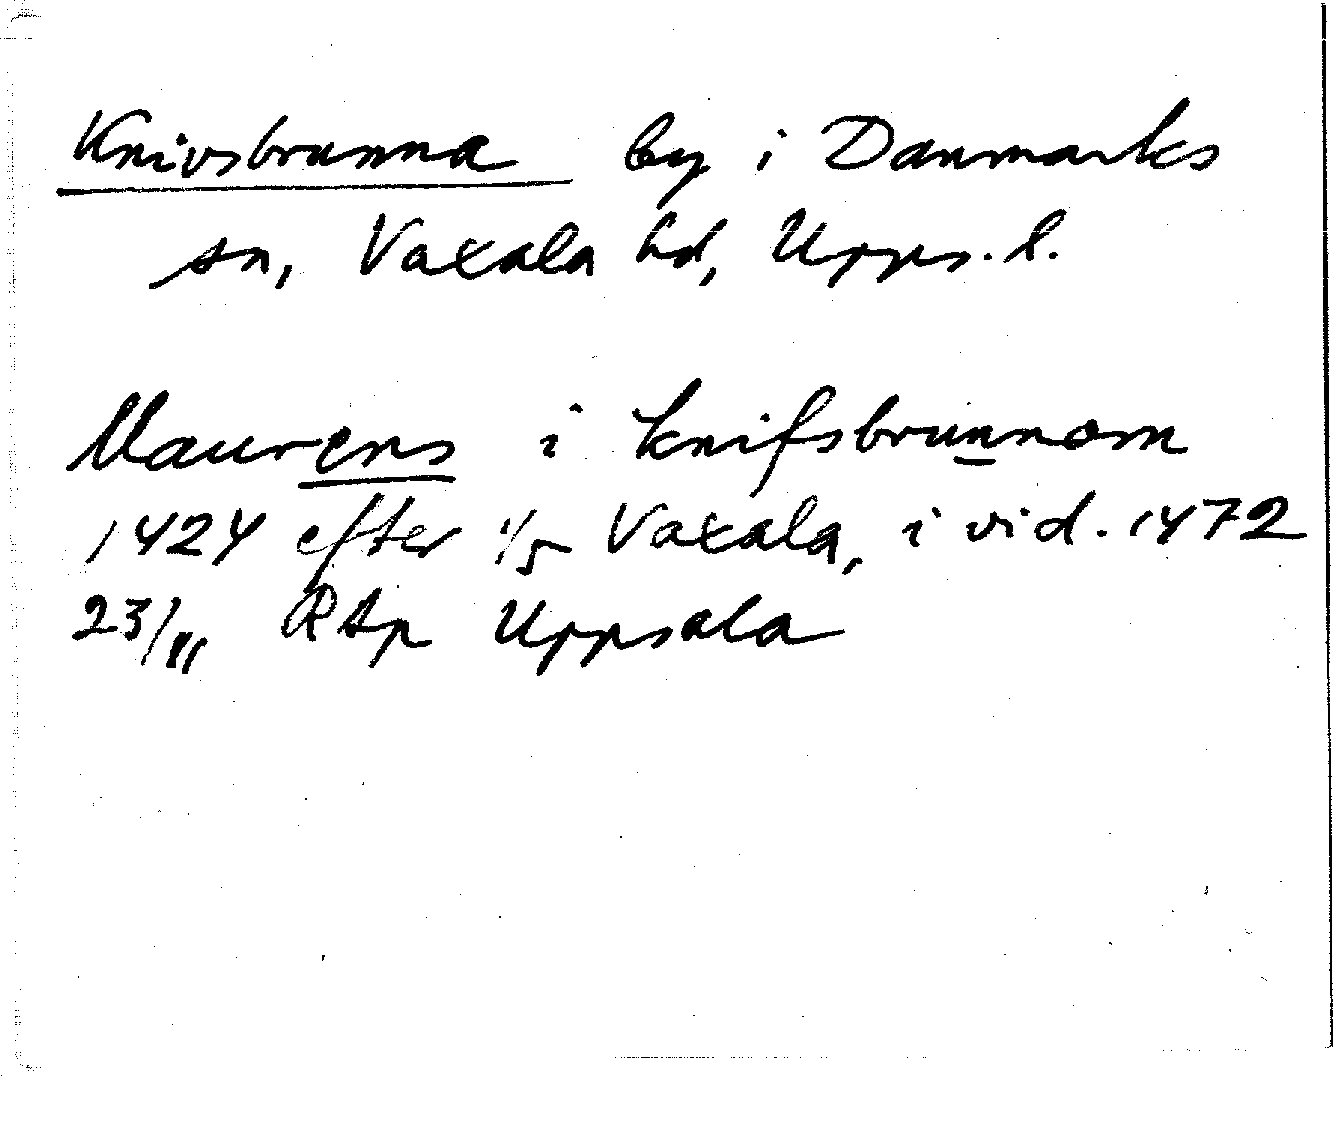 Knivsbrunna by i Danmarks
sn, Vaxala hd, Upps. l.
Maurens i knifsbrunnom
1424 efter 1/5 Vaxala, i vid. 1472
23/11 RAp Uppsala